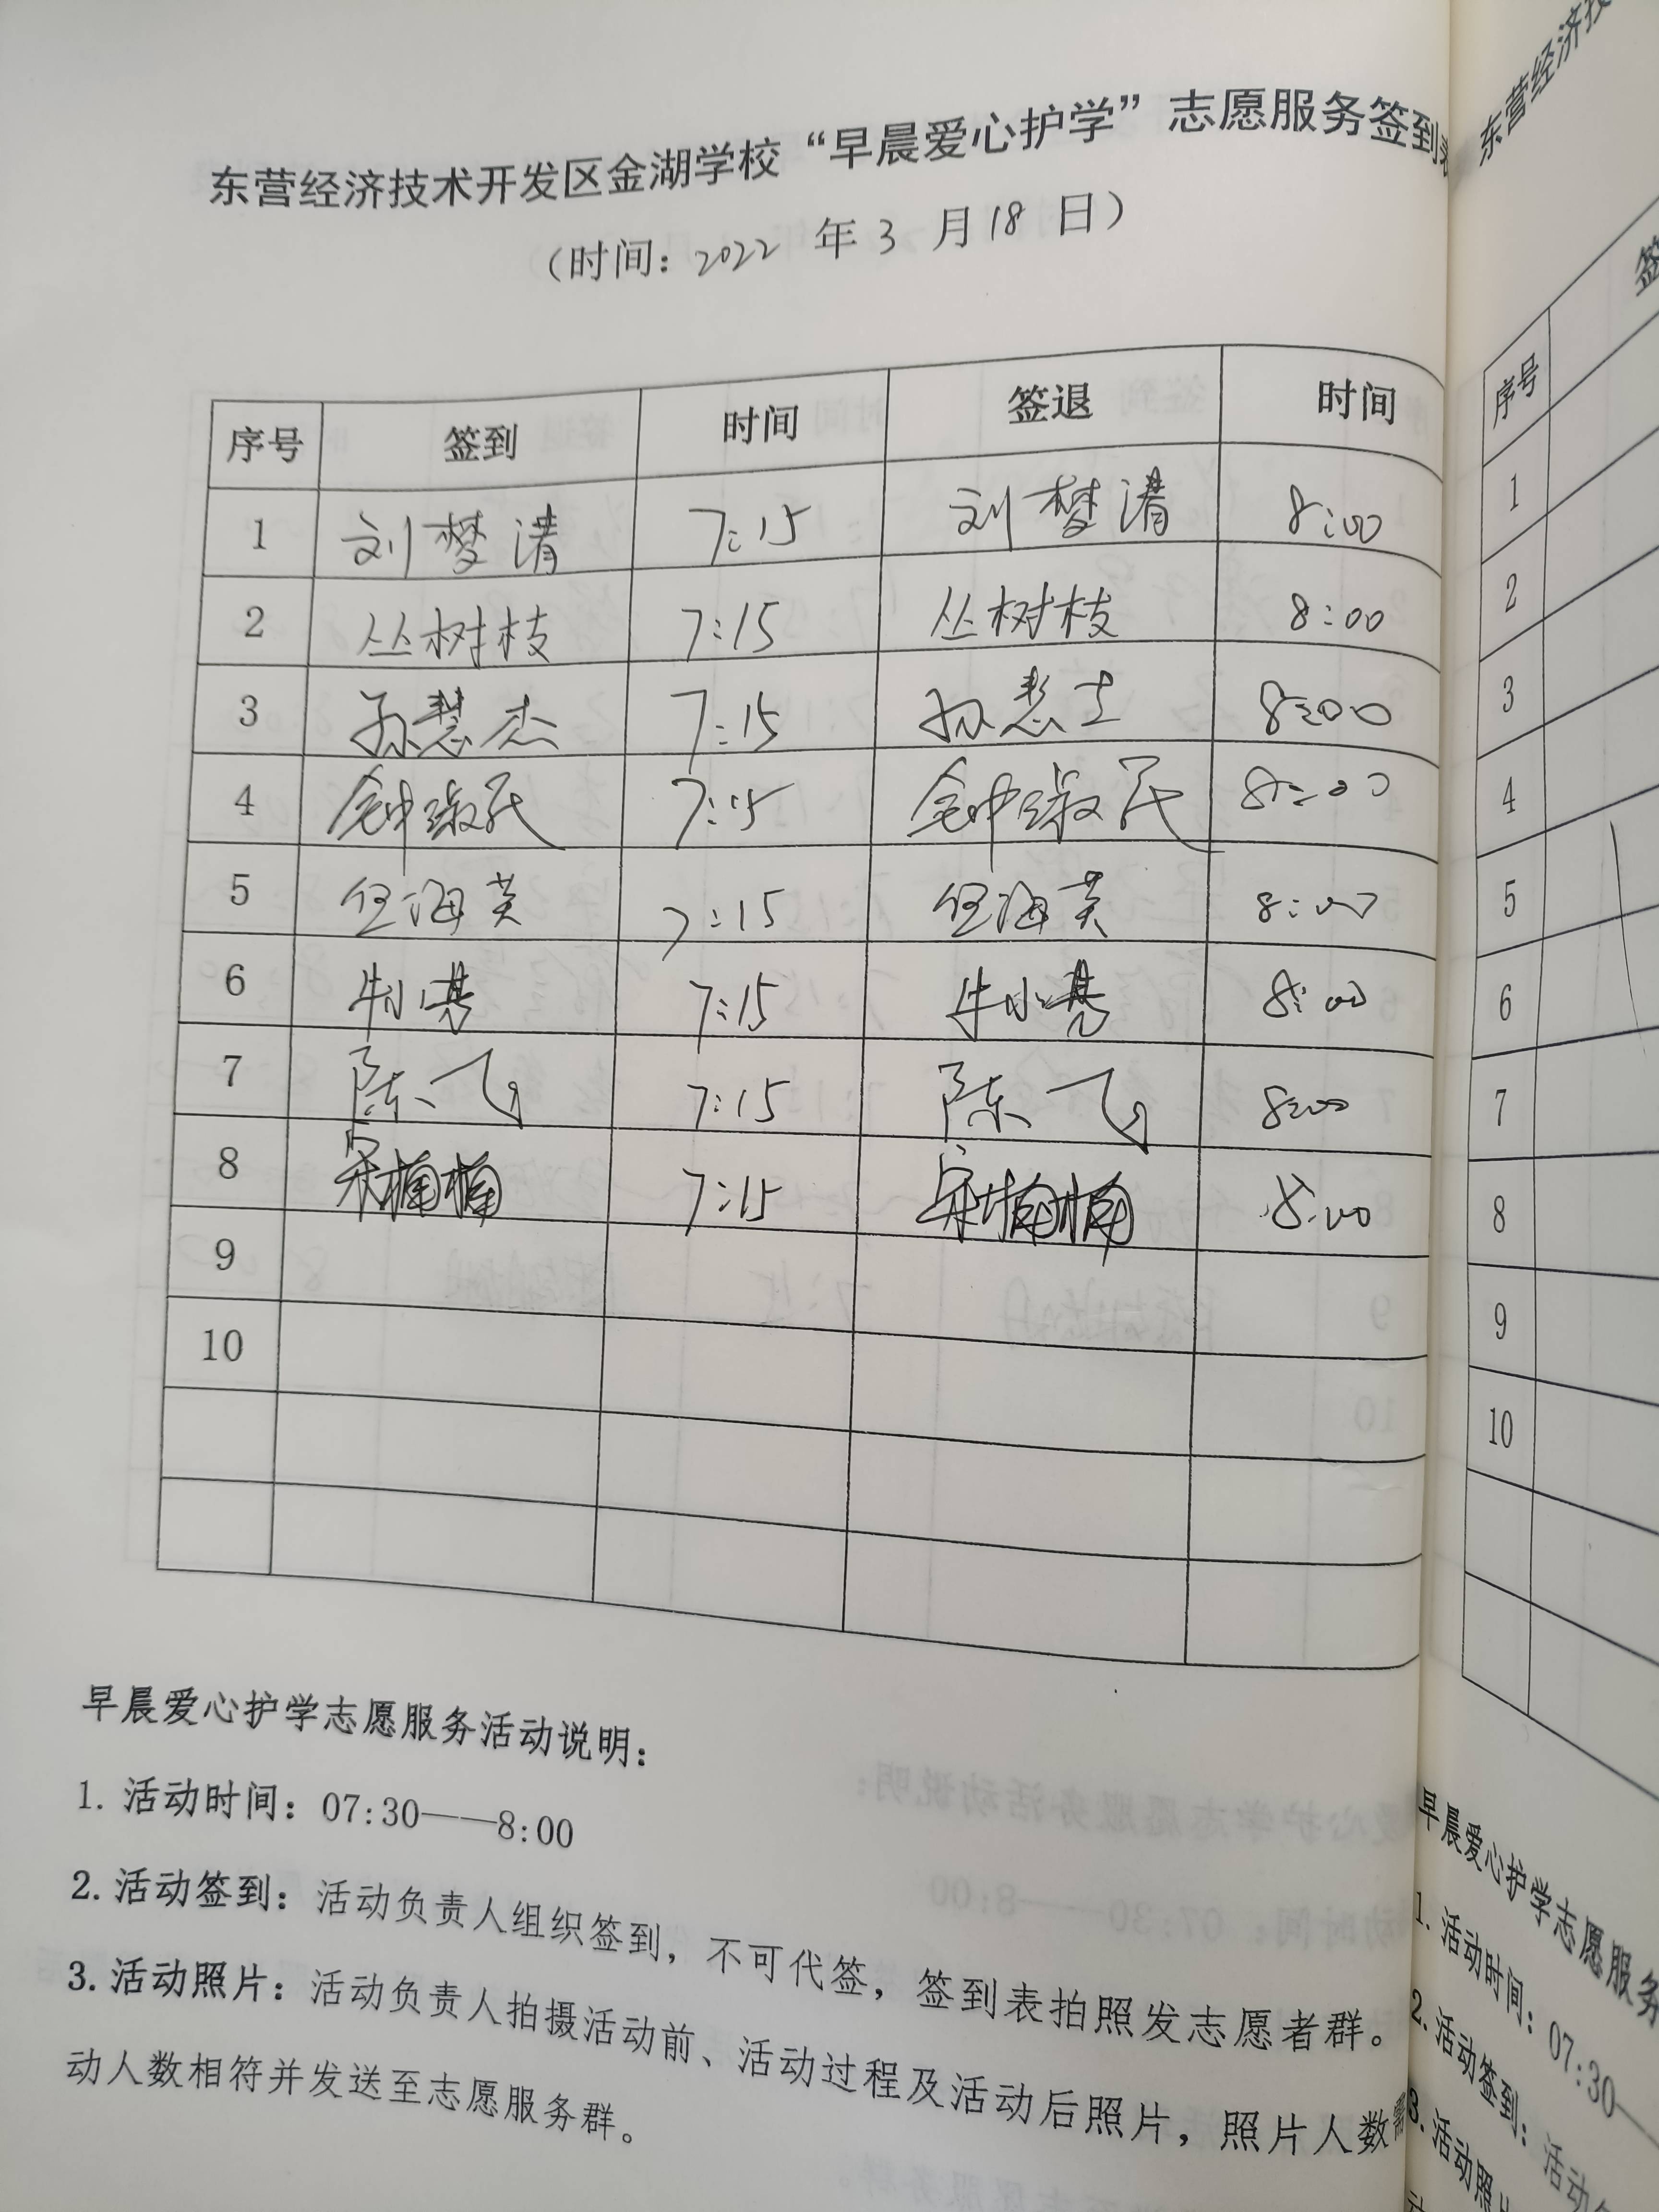 东营经济技术开发区金湖学校“早晨爱心护学”志愿服务签到表
（时间：2022 年 3 月 18 日）
序号 签到 时间 签退 时间
1 刘梦清 7:15 刘梦清 8:00
2 丛树枝 7:15 丛树枝 8:00
3 孙慧杰 7:15 孙慧 8:00
4 钟淑民 7:15 钟淑民 8:00
5 任海英 7:15 任海英 8:00
6 牛小 7:15 牛小 8:00
7 陈飞 7:15 陈飞 8:00
8 宋楠楠 7:15 宋楠楠 8:00
9
10
早晨爱心护学志愿服务活动说明：
1. 活动时间：07:30——8:00
2. 活动签到：活动负责人组织签到，不可代签，签到表拍照发志愿者群。
3. 活动照片：活动负责人拍摄活动前、活动过程及活动后照片，照片人数
动人数相符并发送至志愿服务群。
东营经济技
签
序号
1
2
3
4
5
6
7
8
9
10
早晨爱心护学志愿服务
1. 活动时间：07:30—
2. 活动签到：活动
3. 活动照片